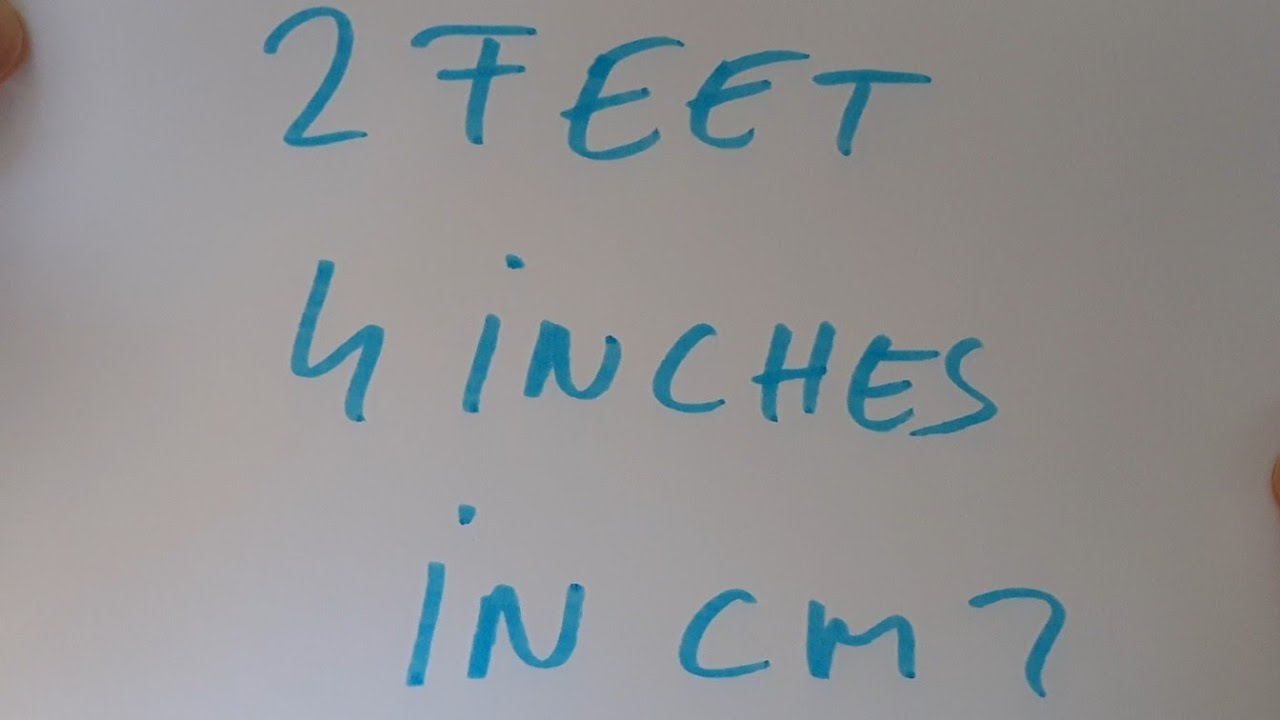 2 FEET
4 iNCHES
iN CM?